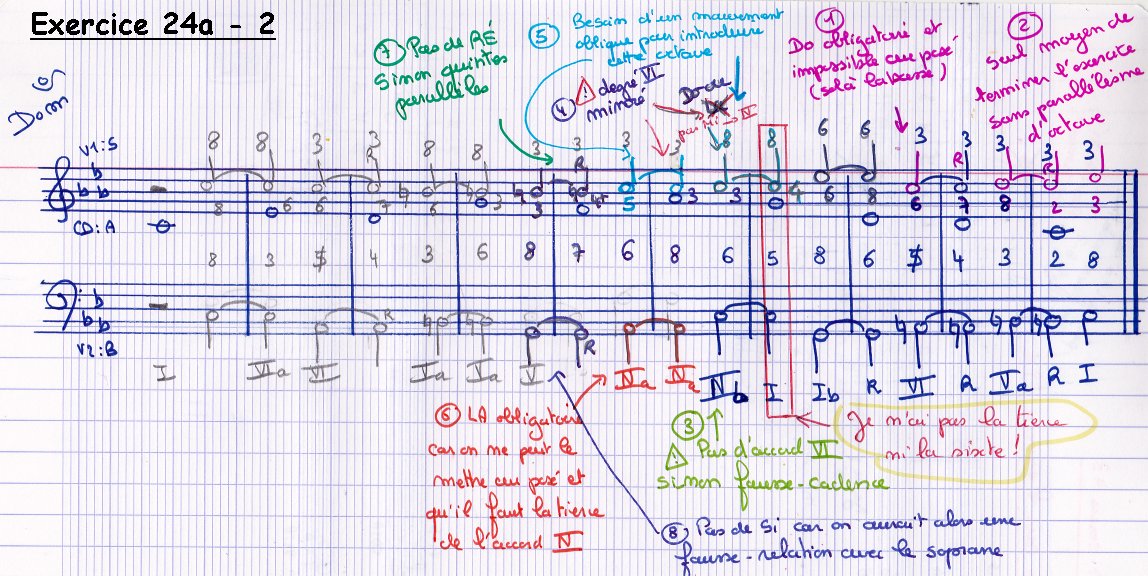 Exercice 24a - 2
⑦ Pas de RÉ
sinon quintes
parallèles
⑤ Besoin d'un mouvement
oblique pour introduire
cette octave
④ ⚠ degré VI
mineure
Do m
V1:S
CD:A
V2:B
① Do obligatoire et
impossible au posé
(sol à la basse)
② seul moyen de
terminer l'exercice
sans parallélisme
d'octave
8 8 3 3 8 8 3 3 3 3 8 8 6 6 3 3 3 3 3
8 3 5 4 3 6 8 7 6 8 6 5 8 6 5 4 3 2 8
I VIa VI Va Va V R IVa IVa IVb I Ib R VI R Va R I
⑥ LA obligatoire
car on ne peut le
mettre au posé et
qu'il faut la tierce
de l'accord IV
③
⚠ Pas d'accord VI
sinon fausse-cadence
Je n'ai pas la tierce
ni la sixte !
⑧ Pas de Si car on aurait alors une
fausse-relation avec le soprane